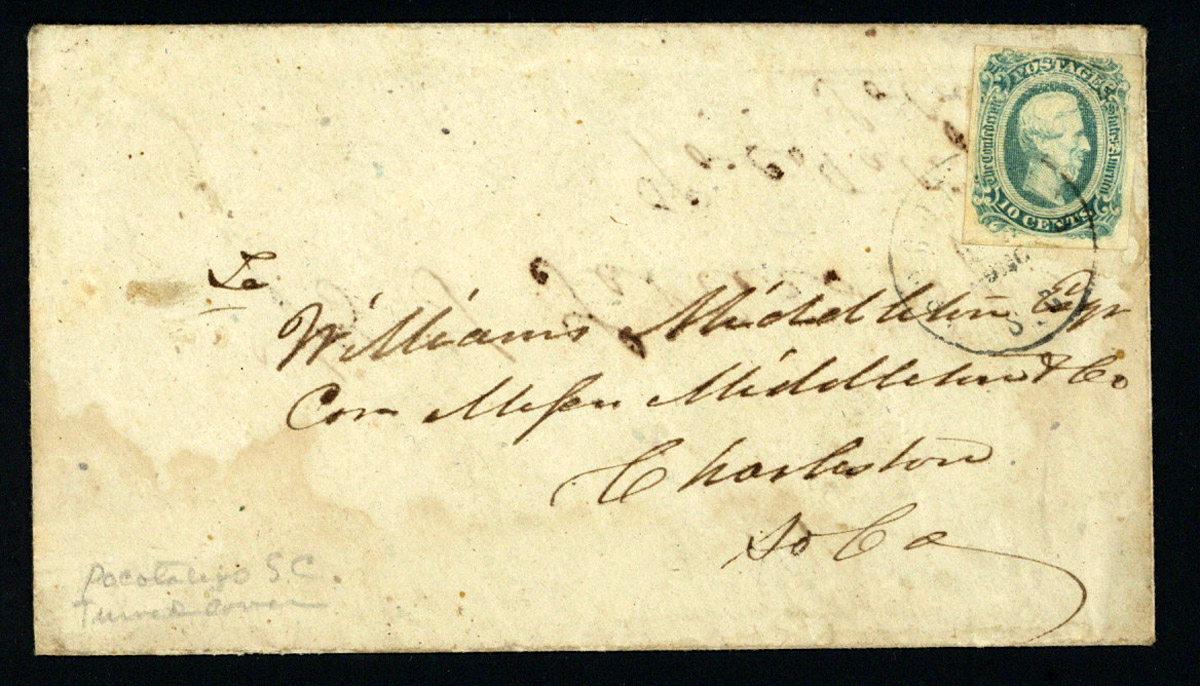 POSTAGE
The Confederate States America
10 CENTS
To
Williams Middleton Esqr
Care Messrs Middleton & Co
Charleston
So Ca
Pocotaligo S.C.
Turned Cover